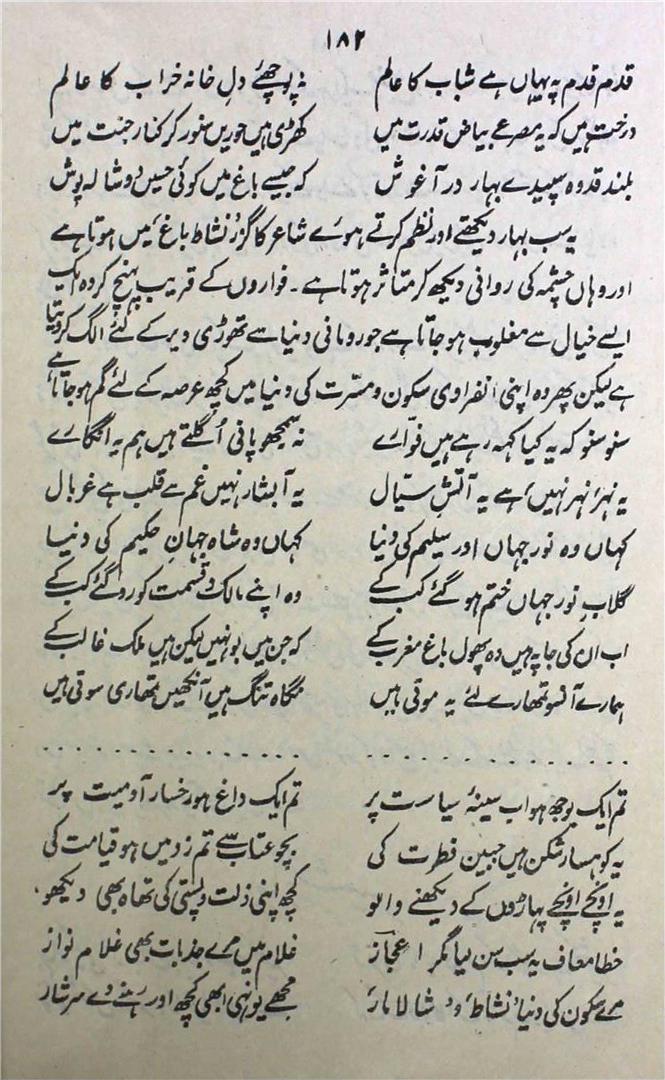 ۱۸۲
قدم قدم پہ یہاں ہے شباب کا عالم نہ پوچھئے دلِ خانہ خراب کا عالم
درخت ہیں کہ یہ مصرعے بیاض قدرت میں کھڑی ہیں حوریں سنور کر کنار جنت میں
بلند قد وہ سپیدے بہار در آغوش کہ جیسے باغ میں کوئی حسیں دوشالہ پوش
یہ سب بہار دیکھتے اور نظم کرتے ہوئے شاعر کا گزر نشاط باغ میں ہوتا ہے
اور وہاں چشمہ کی روانی دیکھ کر متاثر ہوتا ہے۔ فواروں کے قریب پہنچ کر وہ ایک
ایسے خیال سے مغلوب ہو جاتا ہے جو رومانی دنیا سے تھوڑی دیر کے لئے الگ کر دیتا
ہے لیکن پھر وہ اپنی انفرادی سکون و مسرت کی دنیا میں کچھ عرصہ کے لئے گم ہو جاتا ہے
سنو سنو کہ یہ کیا کہہ رہے ہیں فوّارے نہ سمجھو پانی اُگلتے ہیں ہم یہ انگارے
یہ نہرُ نہر نہیں، ہے یہ آتشِ سیّال یہ آبشار نہیں غم سے قلب ہے غربال
کہاں وہ نور جہاں اور سلیم کی دنیا کہاں وہ شاہ جہانِ حکیم کی دنیا
گلابِ نور جہاں ختم ہو گئے کب کے وہ اپنے مالک و قسمت کو رو گئے کب کے
اب ان کی جا پہ ہیں وہ پھول باغ مغرب کے کہ جن میں بو نہیں لیکن ہیں ملک غالب کے
ہمارے آنسو تمھارے لئے یہ موتی ہیں نگاہ تنگ ہیں آنکھیں تمھاری سوتی ہیں
. . . . . . . . . . . . . . . . . . . . . . . . . .
تم ایک بوجھ ہو اب سینۂ سیاست پر تم ایک داغ ہو رخسار آدمیت پر
یہ کوہسار شکن ہیں جبین فطرت کی بچو عتاب سے تم زد میں ہو قیامت کی
یہ اونچے اونچے پہاڑوں کے دیکھنے والو کچھ اپنی ذلت و پستی کی تھاہ بھی دیکھو،
خطا معاف یہ سب سن لیا مگر اعجاز غلام میں مرے جذبات بھی غلام نواز
مرے سکون کی دنیا 'نشاط' و 'شالامار' مجھے یونہی ابھی کچھ اور رہنے دے سرشار